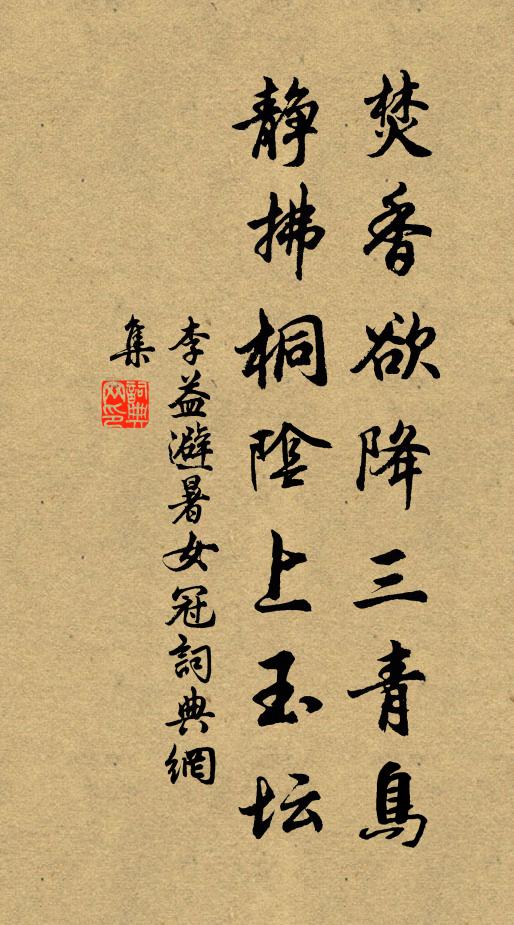 焚香欲降三青鳥
静拂桐陰上玉坛
李益避暑女冠詞典網
集
詞典网印